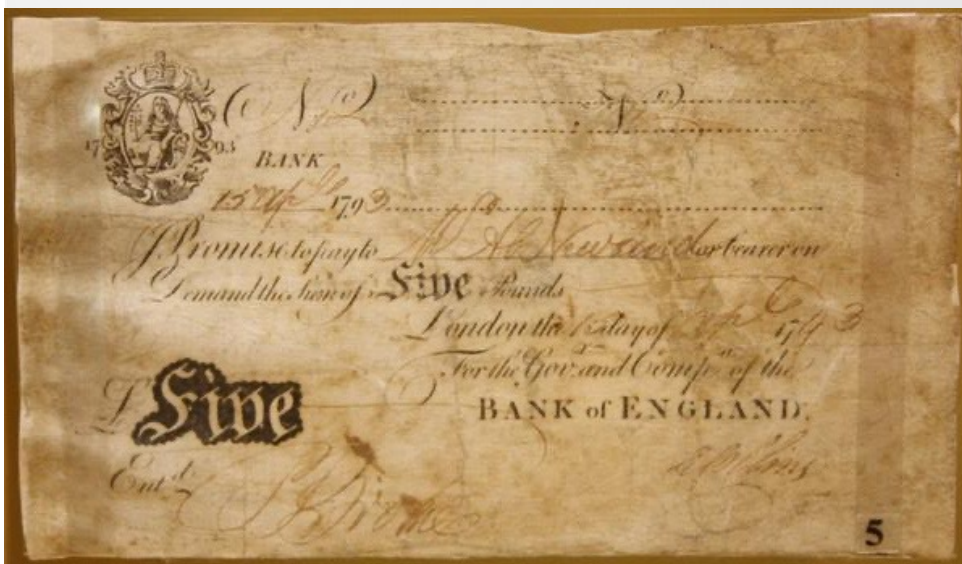 No No
17 93
BANK
15 Apl 1793
I Promise to pay to Mr Ab Newland or bearer on
Demand the Sum of Five Pounds
London the 15 day of Apl 1793
For the Govr and Compa of the
£ Five
BANK of ENGLAND.
Entd
5